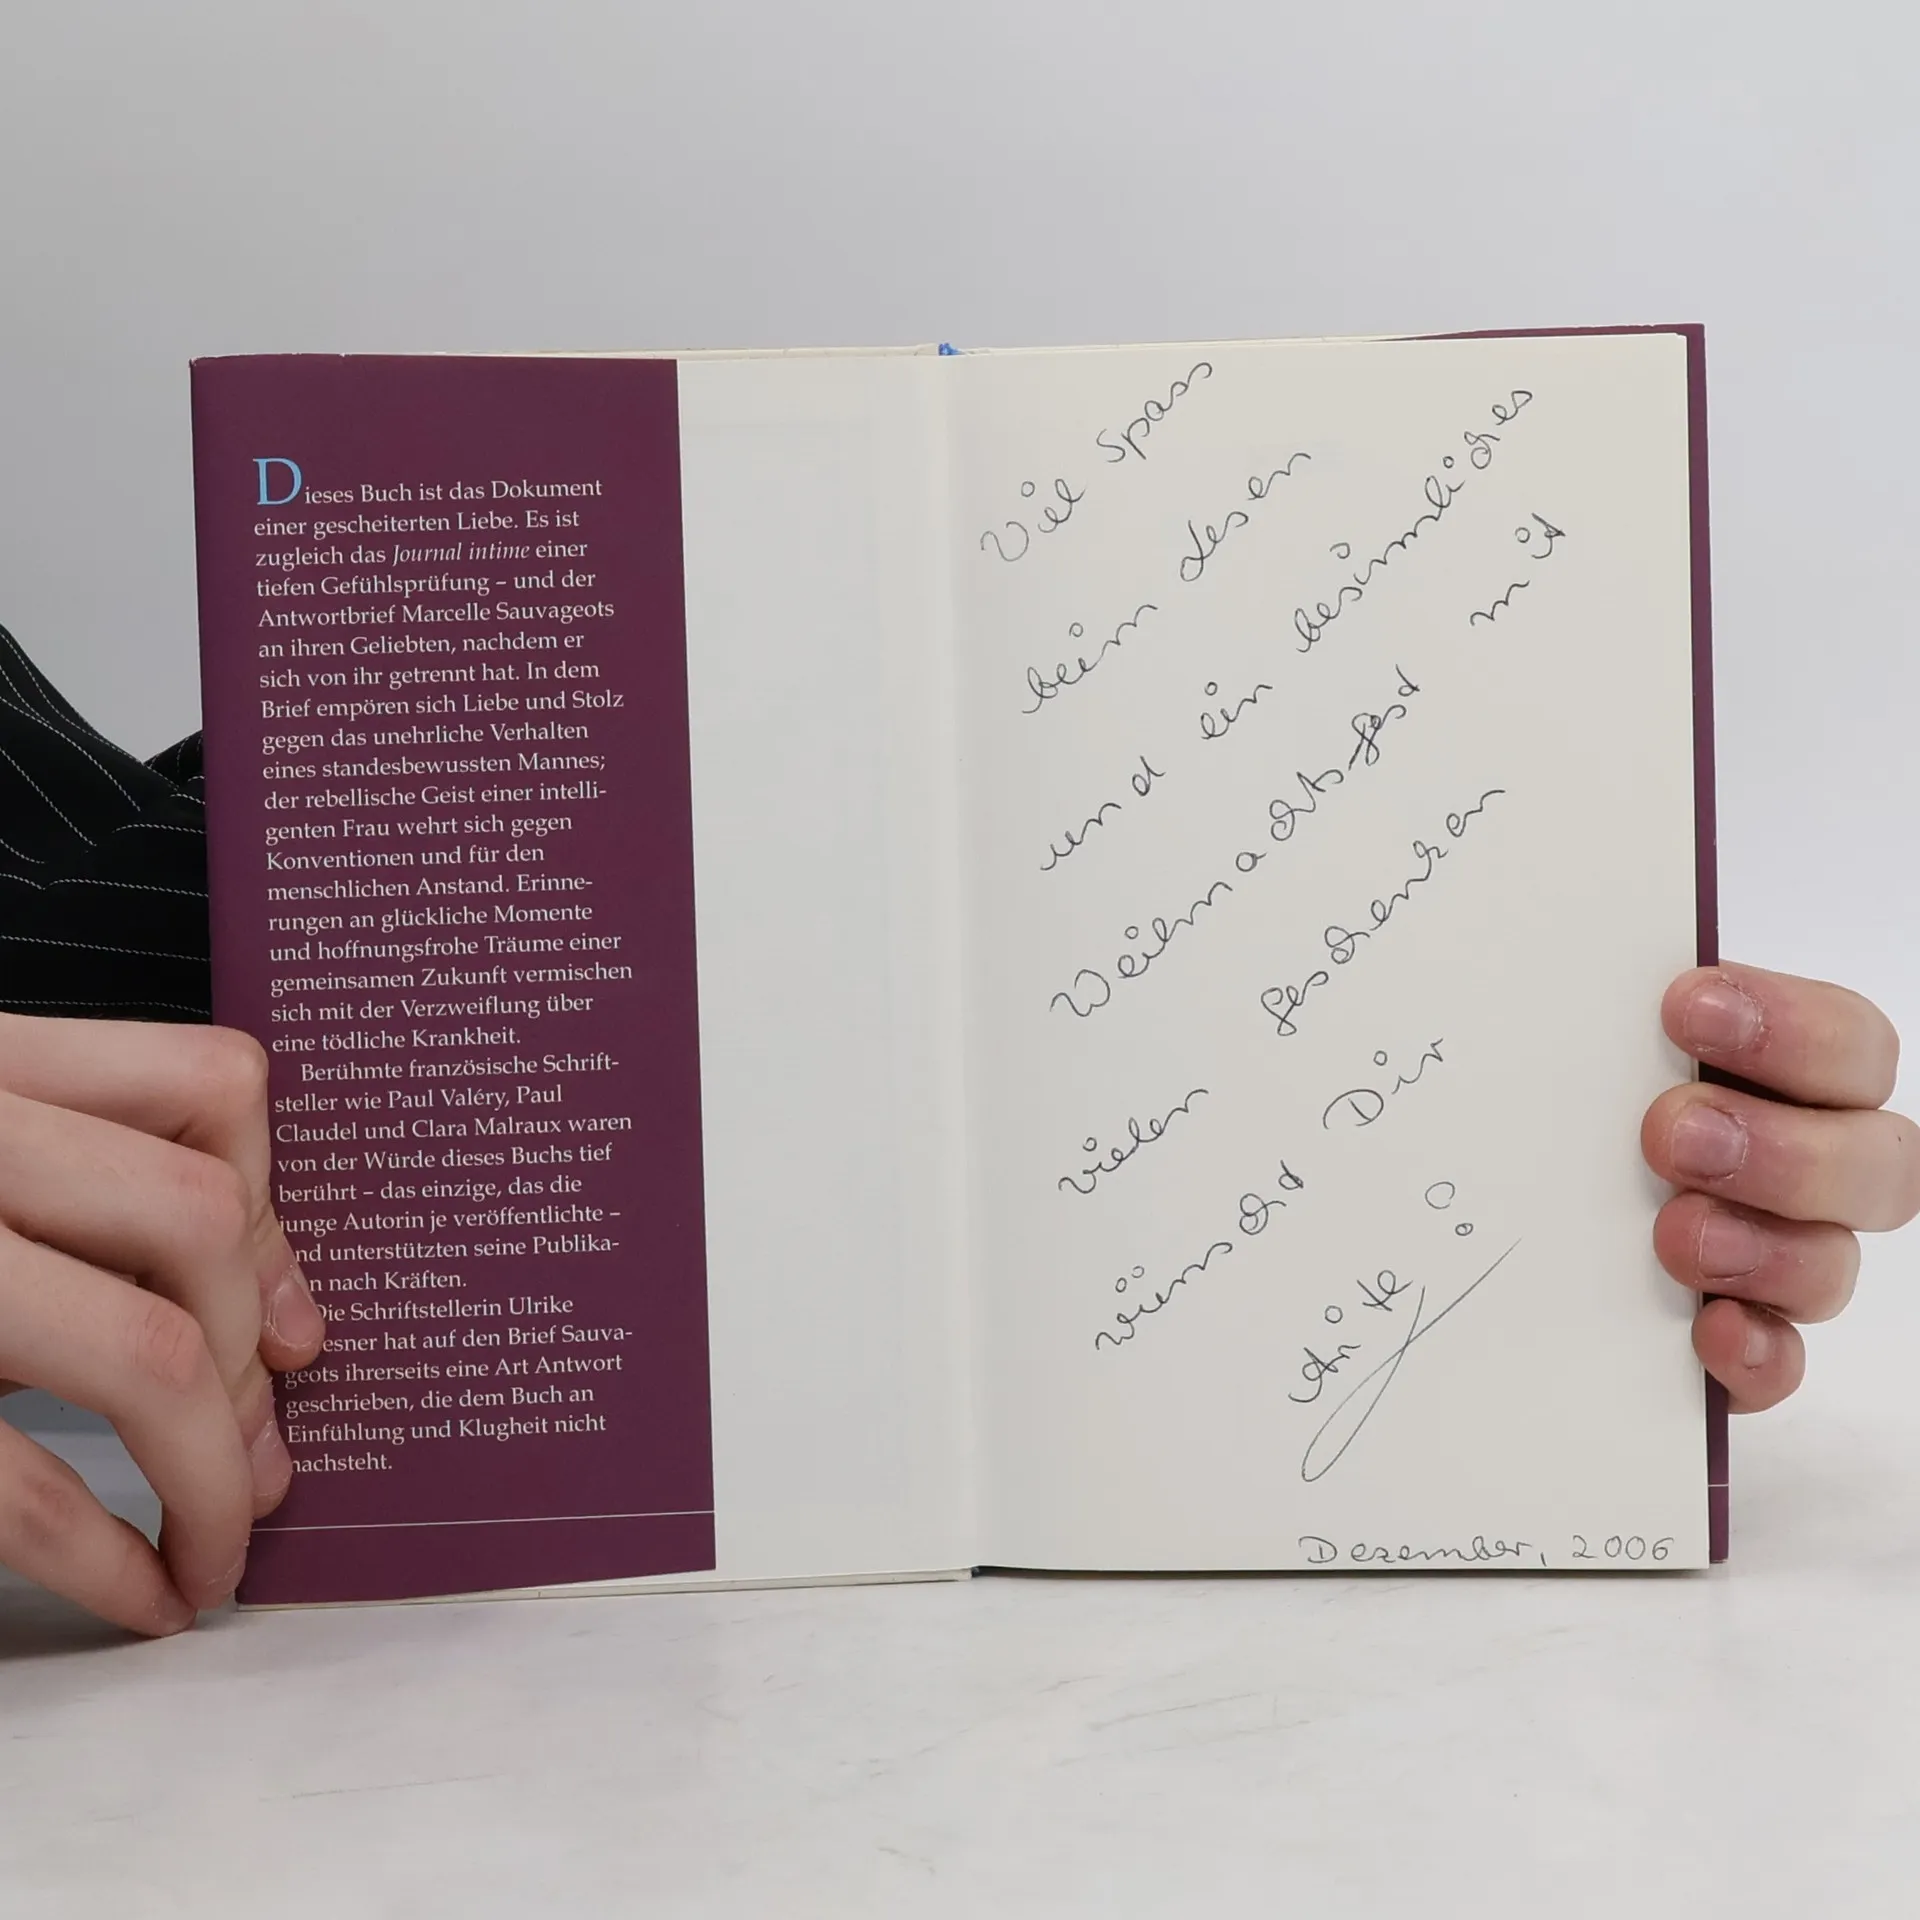 Dieses Buch ist das Dokument
einer gescheiterten Liebe. Es ist
zugleich das Journal intime einer
tiefen Gefühlsprüfung – und der
Antwortbrief Marcelle Sauvageots
an ihren Geliebten, nachdem er
sich von ihr getrennt hat. In dem
Brief empören sich Liebe und Stolz
gegen das unehrliche Verhalten
eines standesbewussten Mannes;
der rebellische Geist einer intelli-
genten Frau wehrt sich gegen
Konventionen und für den
menschlichen Anstand. Erinne-
rungen an glückliche Momente
und hoffnungsfrohe Träume einer
gemeinsamen Zukunft vermischen
sich mit der Verzweiflung über
eine tödliche Krankheit.
Berühmte französische Schrift-
steller wie Paul Valéry, Paul
Claudel und Clara Malraux waren
von der Würde dieses Buchs tief
berührt – das einzige, das die
junge Autorin je veröffentlichte –
nd unterstützten seine Publika-
n nach Kräften.
Die Schriftstellerin Ulrike
esner hat auf den Brief Sauva-
geots ihrerseits eine Art Antwort
geschrieben, die dem Buch an
Einfühlung und Klugheit nicht
nachsteht.
Viel Spass
beim Lesen
und ein besinnliches
Weihnachtsfest mit
vielen Geschenken
wünscht Dir
Dezember, 2006